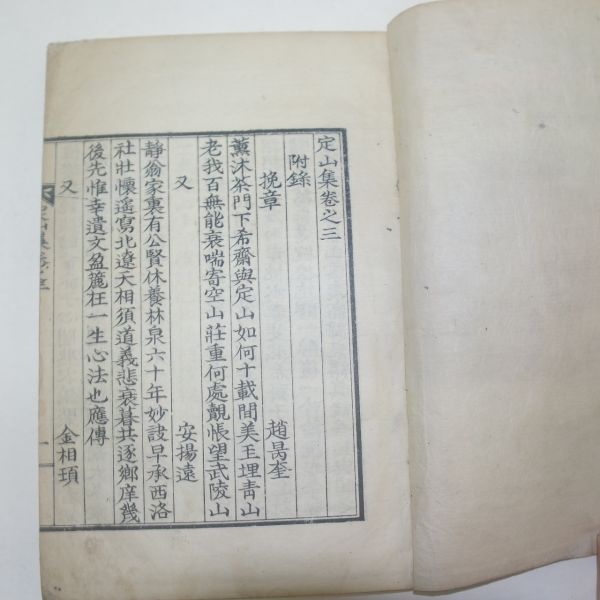 定山集卷之三
附錄
挽章 趙昺奎
薰沐茶門下希齋與定山如何十載間美玉埋靑山
老我百無能衰喘寄空山莊重何處覿悵望武陵山
又 安揚遠
靜翁家裏有公賢休養林泉六十年妙詖早承西洛
社壯懷遙寫北遼天相須道義悲衰暮共逐鄕庠幾
後先惟幸遺文盈簏在一生心法也應傳
又 金相頊
定山集卷之三 一